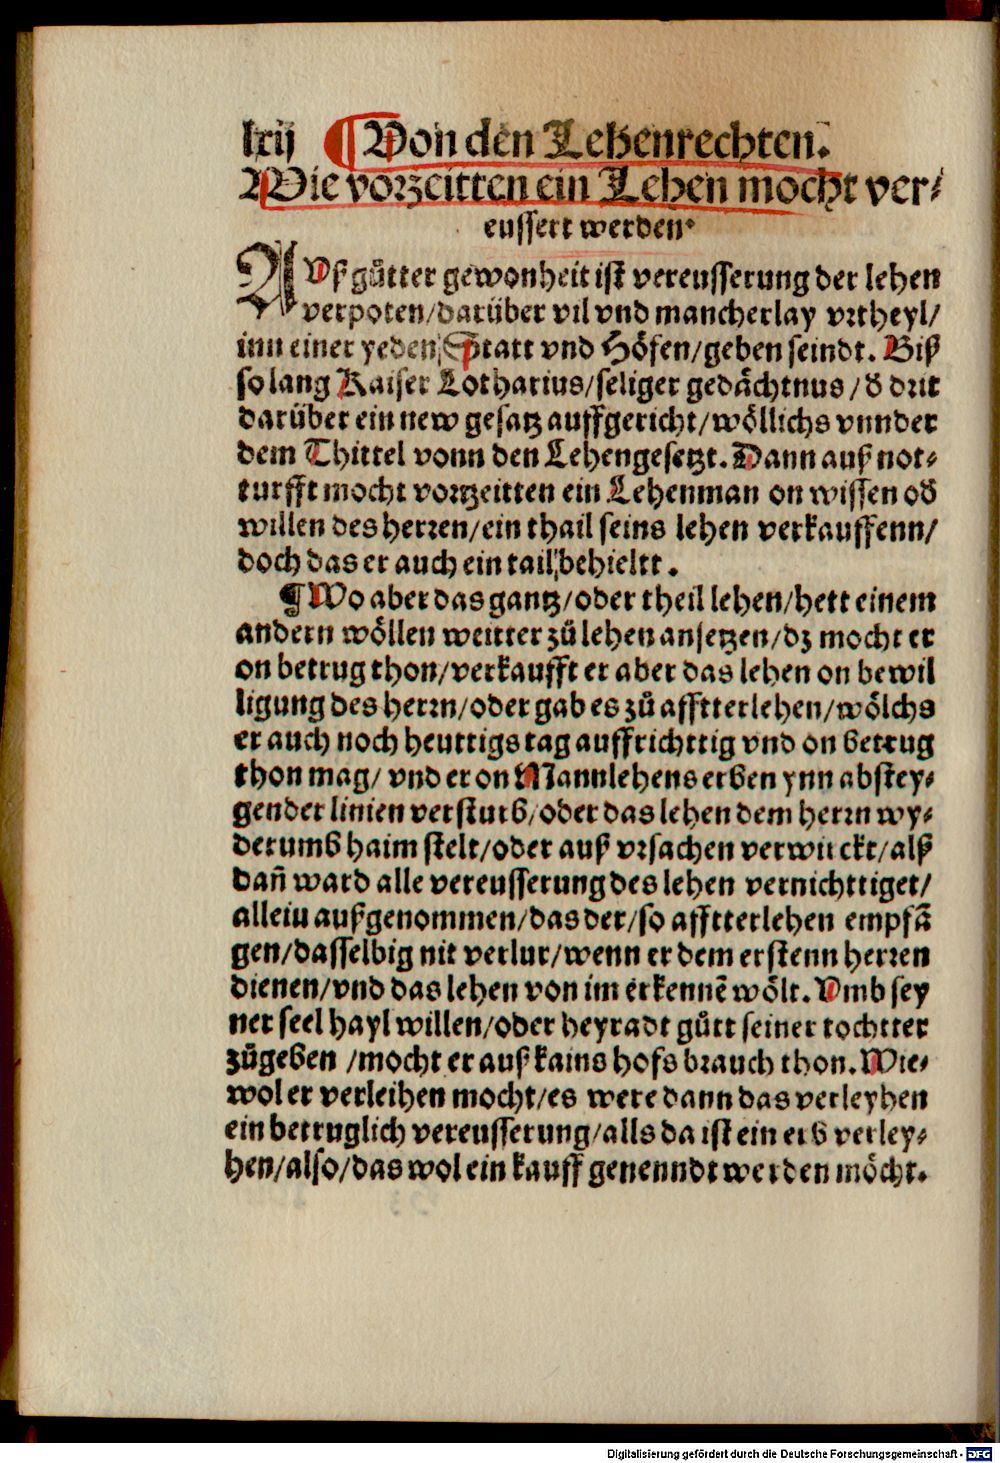 lxij ¶ Von den Lehenrechten.
Wie vorzeitten ein Lehen mocht ver⸗
eussert werden.
AUß gůtter gewonheit ist vereusserung der lehen
verpoten/darüber vil vnd mancherlay vrtheyl/
inn einer yeden Statt vnd Höfen/geben seindt. Biß
so lang Kaiser Lotharius/seliger gedächtnus/ d drit
darüber ein new gesatz auffgericht/wöllichs vnnder
dem Thittel vonn den Lehengesetzt. Dann auß not⸗
turfft mocht vorzeitten ein Lehenman on wissen od
willen des herren/ein thail seins lehen verkauffenn/
doch das er auch ein tail behieltt.
¶ Wo aber das gantz/oder theil lehen/hett einem
andern wöllen weitter zů lehen ansetzen/dz mocht er
on betrug thon/verkaufft er aber das lehen on bewil
ligung des herrn/oder gab es zů afftterlehen/wölchs
er auch noch heuttigs tag auffrichttig vnd on betrug
thon mag/ vnd er on Mannlehens erben ynn abstey⸗
gender linien versturb/oder das lehen dem herrn wy⸗
derumb haim stelt/oder auß vrsachen verwürckt/alß
dañ ward alle vereusserung des lehen vernichttiget/
alleiu außgenommen/das der/so afftterlehen empfã
gen/dasselbig nit verlur/wenn er dem erstenn herren
dienen/vnd das lehen von im erkennẽ wölt. Vmb sey
ner seel hayl willen/oder heyradt gůtt seiner tochtter
zůgeben /mocht er auß kains hofs brauch thon. Wie⸗
wol er verleihen mocht/es were dann das verleyhen
ein betruglich vereusserung/alls da ist ein erb verley⸗
hen/also/das wol ein kauff genenndt werden möcht.
Digitalisierung gefördert durch die Deutsche Forschungsgemeinschaft - DFG